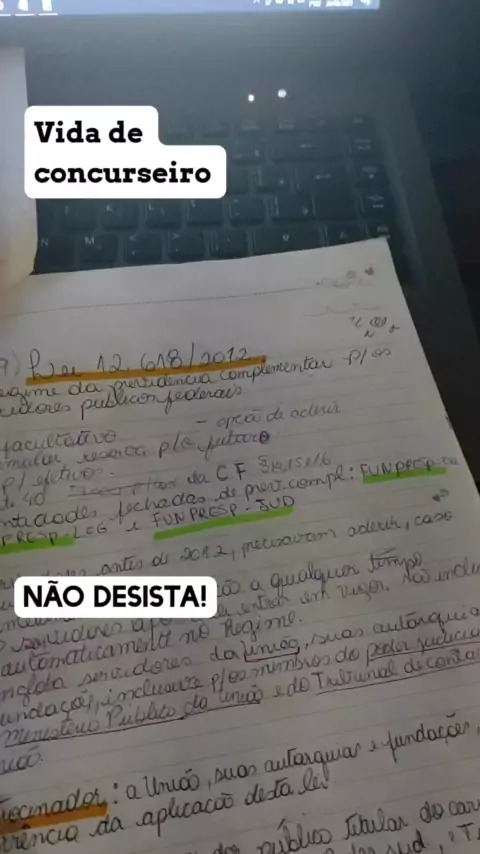 Vida de
concurseiro
9) Lei 12.618/2012
regime da previdência complementar p/ os
servidores públicos federais
facultativo - opção de aderir
reserva p/ o futuro
p/ efetivos.
40 da CF §14,15,16
entidades fechadas de prev. compl: FUNPRESP-
PRESP-LEG e FUNPRESP-JUD
antes de 2012, precisavam aderir, caso
NÃO DESISTA!
a qualquer tempo
servidores após entrar em vigor, são
automaticamente no Regime.
engloba servidores da União, suas autarquias
fundações, inclusive p/ os membros do poder judiciá
Ministério Público da União e do Tribunal de conta
União.
: a União, suas autarquias e fundações,
da aplicação desta lei.
público titular do car